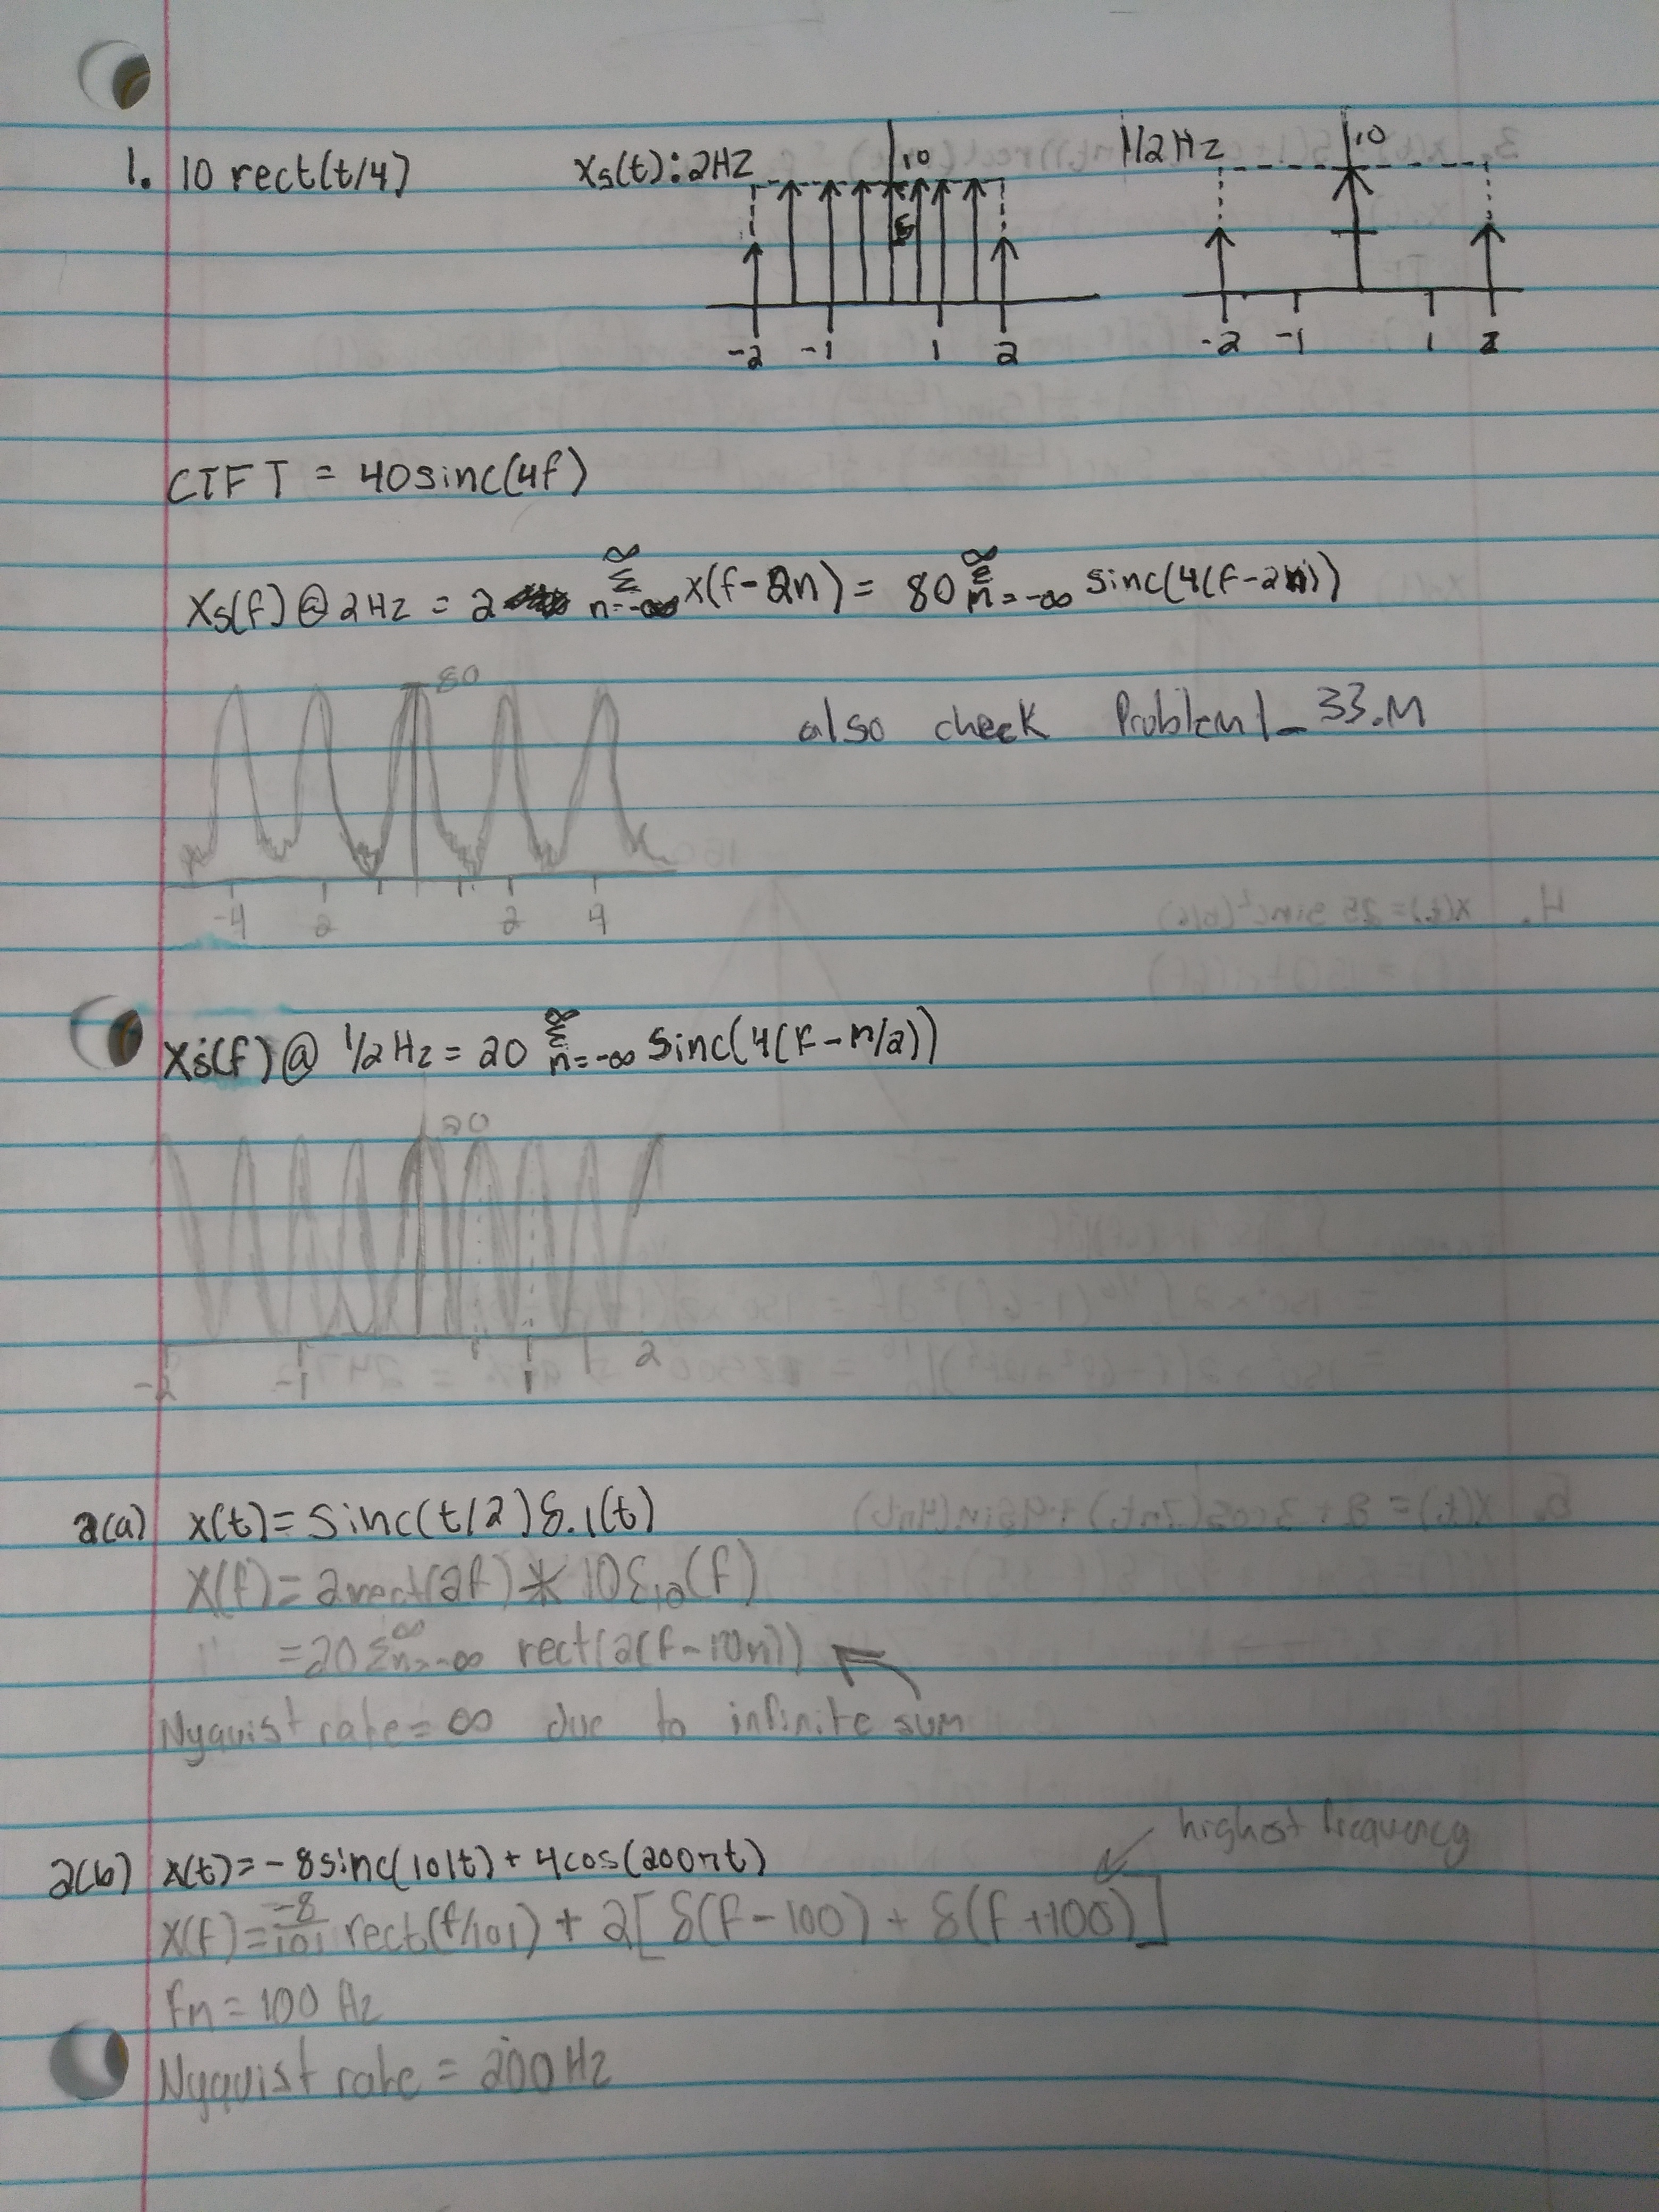 1. 10 rect(t/4) Xs(t): 2HZ 10 1/2 Hz 10
-2 -1 1 2 -2 -1 1 2
CTFT = 40sinc(4f)
Xs(f) @ 2Hz = 2 ∞Σn=-∞ X(f-2n) = 80 ∞Σn=-∞ sinc(4(f-2n))
80
also check Problem1_33.M
-4 2 2 4
Xs(f) @ 1/2 Hz = 20 ∞Σn=-∞ sinc(4(f-n/2))
20
-2 -1 1 2
2(a) x(t)= sinc(t/2)δ.1(t)
X(f)= 2rect(2f) * 10δ10(f)
" =20 Σ∞n=-∞ rect(2(f-10n))
Nyquist rate = ∞ due to infinite sum
highest frequency
2(b) x(t)= -8sinc(101t) + 4cos(200πt)
X(f)= -8/101 rect(f/101) + 2[δ(f-100) + δ(f+100)]
Fn = 100 Hz
Nyquist rate = 200Hz